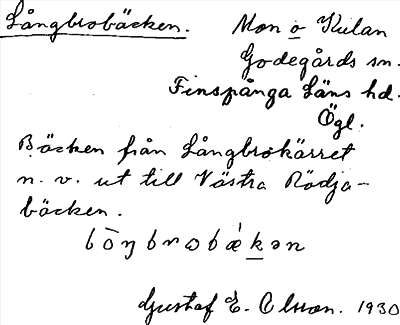 Långbrobäcken.
Mon o Kulan
Godegårds sn.
Finspånga Läns hd.
Ögl.
Bäcken från Långbrokärret
n. v. ut till Västra Rödja-
bäcken.
Gustaf E. Olsson. 1930